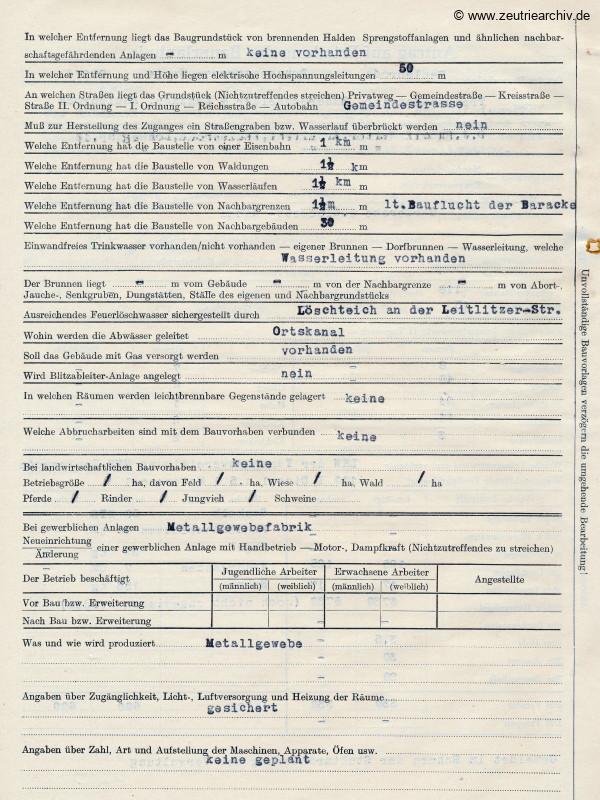 © www.zeutriearchiv.de
In welcher Entfernung liegt das Baugrundstück von brennenden Halden Sprengstoffanlagen und ähnlichen nachbar-
schaftsgefährdenden Anlagen - m keine vorhanden
In welcher Entfernung und Höhe liegen elektrische Hochspannungsleitungen 50 m
An welchen Straßen liegt das Grundstück (Nichtzutreffendes streichen) Privatweg — Gemeindestraße — Kreisstraße —
Straße II. Ordnung — I. Ordnung — Reichsstraße — Autobahn Gemeindestrasse
Muß zur Herstellung des Zuganges ein Straßengraben bzw. Wasserlauf überbrückt werden nein
Welche Entfernung hat die Baustelle von einer Eisenbahn 1 km m
Welche Entfernung hat die Baustelle von Waldungen 1½ km
Welche Entfernung hat die Baustelle von Wasserläufen 1½ km m
Welche Entfernung hat die Baustelle von Nachbargrenzen 1½m m lt.Bauflucht der Baracke
Welche Entfernung hat die Baustelle von Nachbargebäuden 30 m
Einwandfreies Trinkwasser vorhanden/nicht vorhanden — eigener Brunnen — Dorfbrunnen — Wasserleitung, welche
Wasserleitung vorhanden
Der Brunnen liegt - m vom Gebäude - m von der Nachbargrenze - m von Abort-,
Jauche-, Senkgruben, Dungstätten, Ställe des eigenen und Nachbargrundstücks
Ausreichendes Feuerlöschwasser sichergestellt durch Löschteich an der Leitlitzer-Str.
Wohin werden die Abwässer geleitet Ortskanal
Soll das Gebäude mit Gas versorgt werden vorhanden
Wird Blitzableiter-Anlage angelegt nein
In welchen Räumen werden leichtbrennbare Gegenstände gelagert keine
Welche Abbrucharbeiten sind mit dem Bauvorhaben verbunden keine
Bei landwirtschaftlichen Bauvorhaben keine
Betriebsgröße / ha, davon Feld / ha, Wiese / ha, Wald / ha
Pferde / Rinder / Jungvich / Schweine
Bei gewerblichen Anlagen Metallgewebefabrik
Neueinrichtung
Änderung
einer gewerblichen Anlage mit Handbetrieb — Motor-, Dampfkraft (Nichtzutreffendes zu streichen)
Der Betrieb beschäftigt Jugendliche Arbeiter Erwachsene Arbeiter Angestellte
(männlich) (weiblich) (männlich) (weiblich)
Vor Bau bzw. Erweiterung
Nach Bau bzw. Erweiterung
Was und wie wird produziert Metallgewebe
Angaben über Zugänglichkeit, Licht-, Luftversorgung und Heizung der Räume
gesichert
Angaben über Zahl, Art und Aufstellung der Maschinen, Apparate, Öfen usw.
keine geplant
Unvollständige Bauvorlagen verzögern die umgehende Bearbeitung!